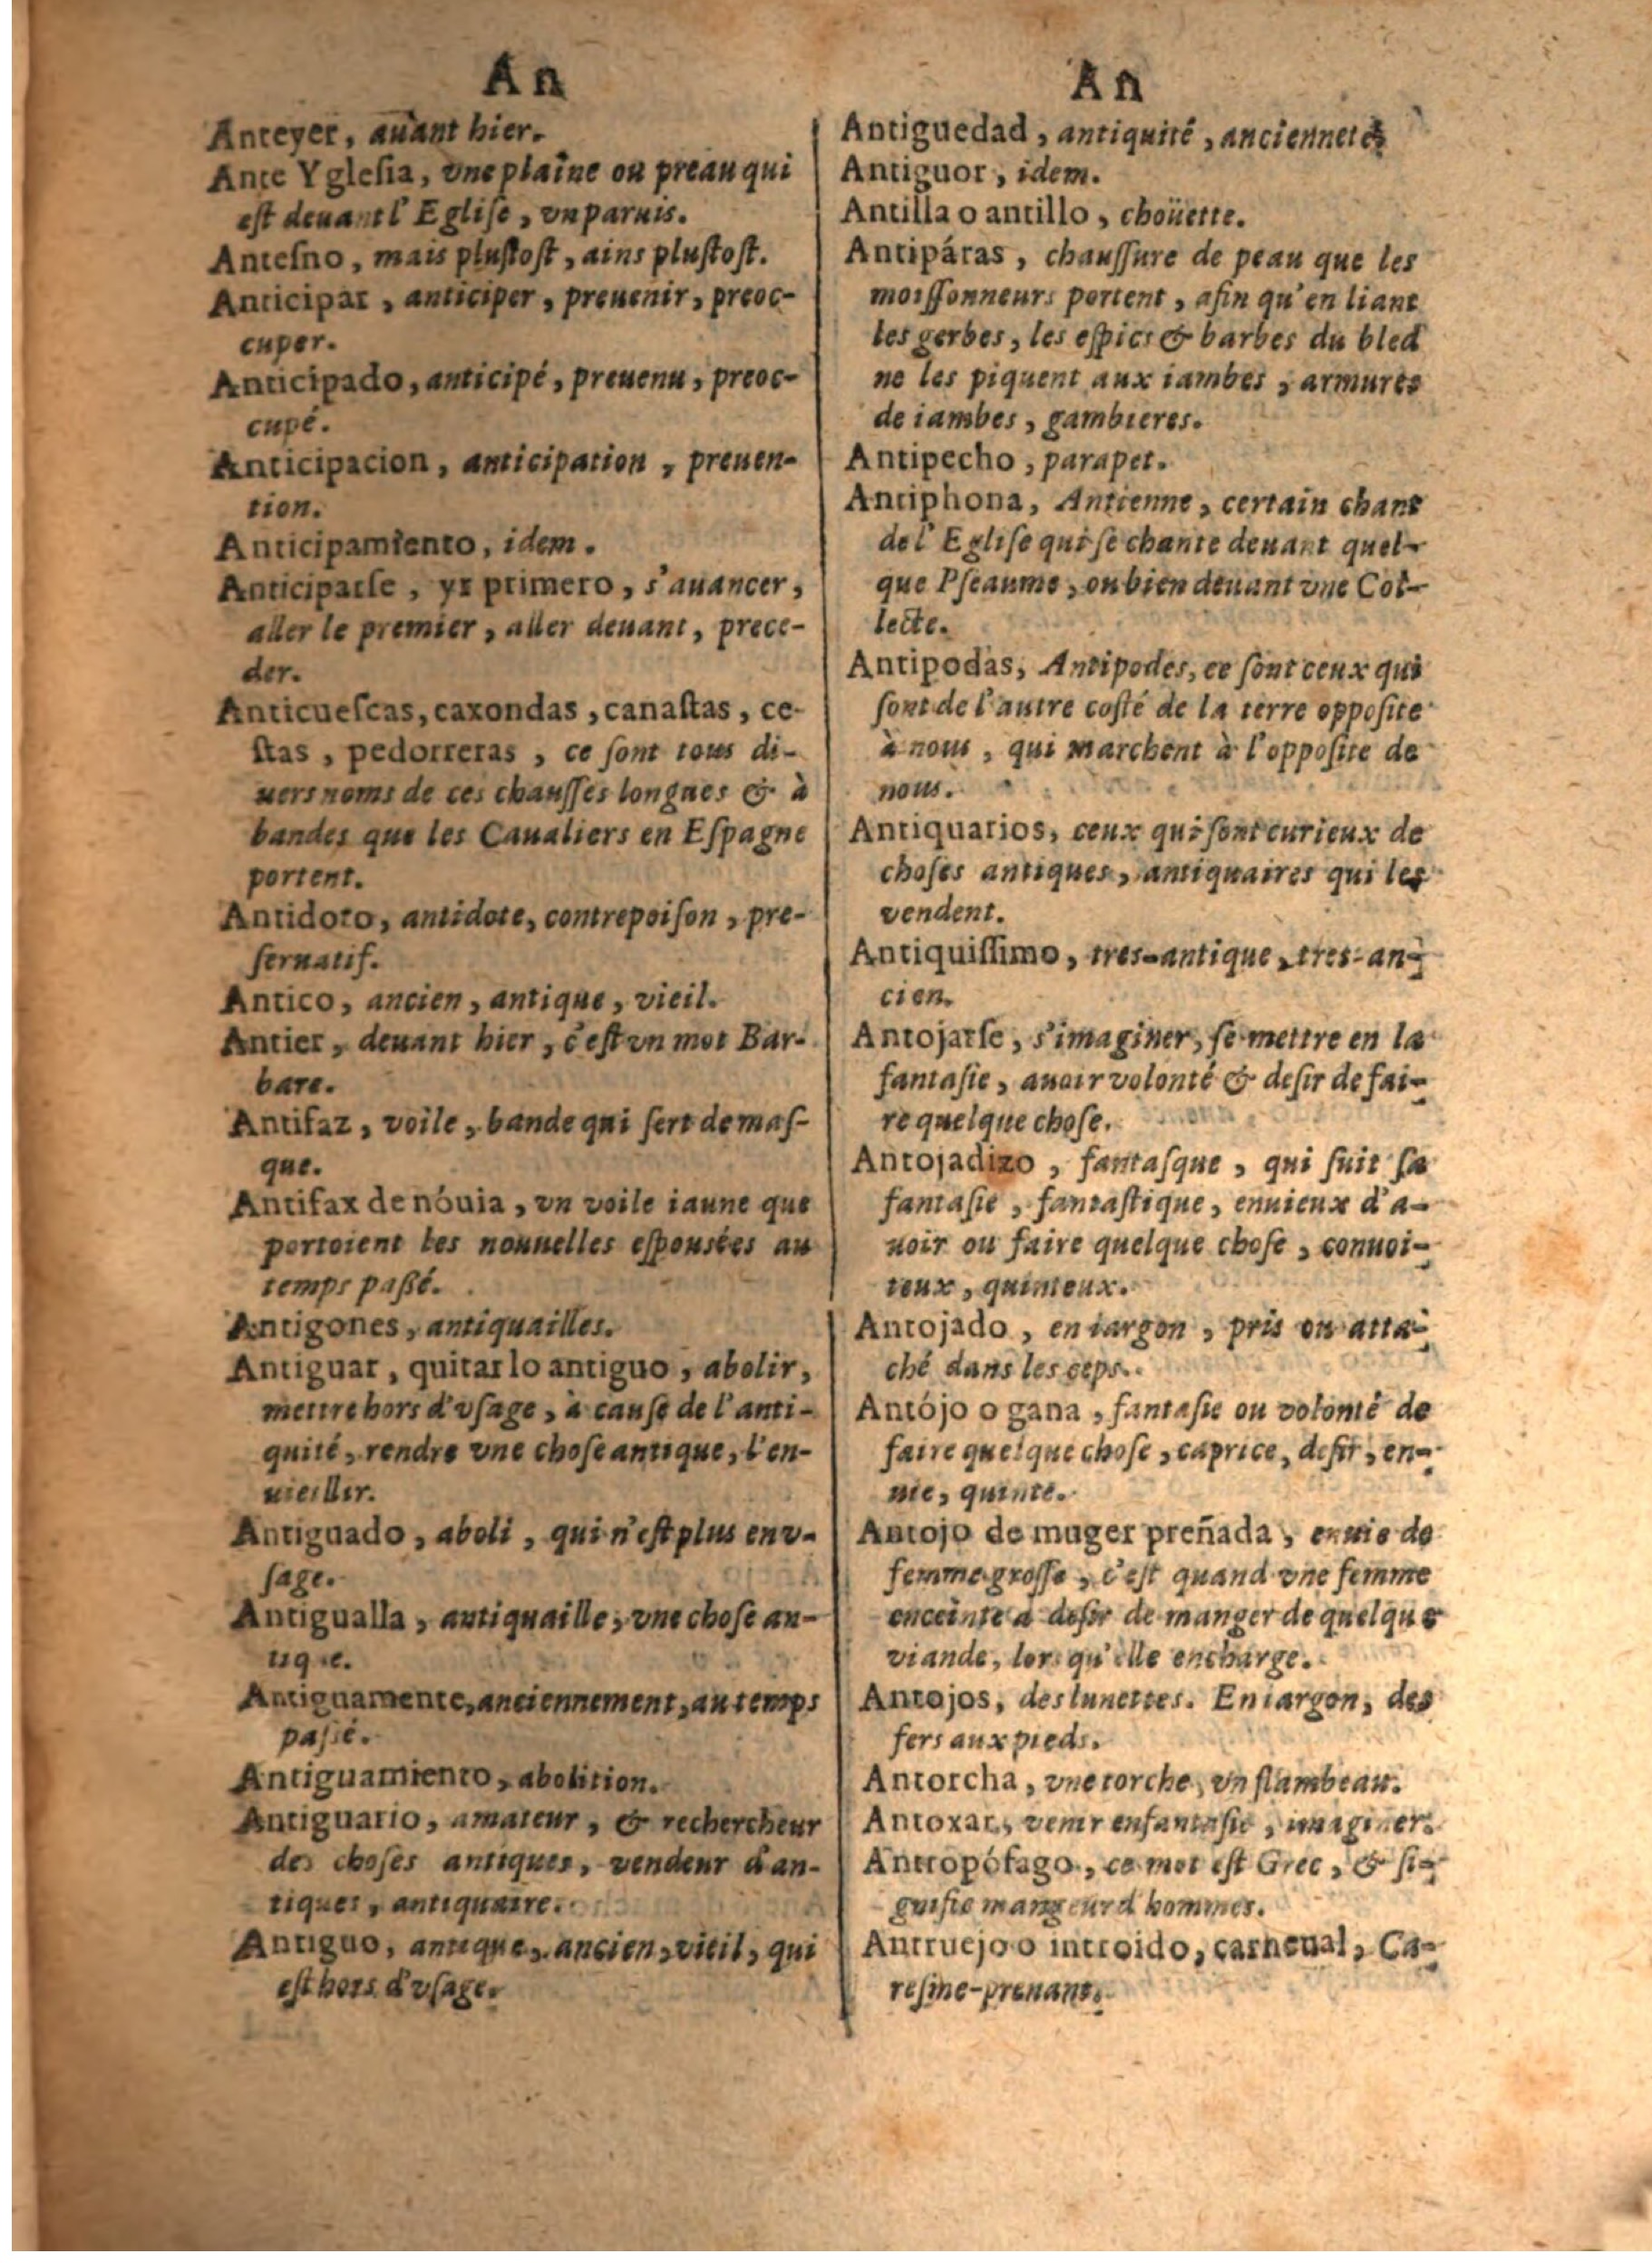 An
Anteyer, auant hier.
Ante Yglesia, vne plaine ou preau qui
est deuant l'Eglise, vn paruis.
Antesno, mais plustost, ains plustost.
Anticipar, anticiper, preuenir, preoc-
cuper.
Anticipado, anticipé, preuenu, preoc-
cupé.
Anticipacion, anticipation, preuen-
tion.
Anticipamiento, idem.
Anticiparse, yr primero, s'auancer,
aller le premier, aller deuant, prece-
der.
Anticuescas, caxondas, canastas, ce-
stas, pedorreras, ce sont tous di-
uers noms de ces chausses longues & à
bandes que les Caualiers en Espagne
portent.
Antidoto, antidote, contrepoison, pre-
seruatif.
Antico, ancien, antique, vieil.
Antier, deuant hier, c'est vn mot Bar-
bare.
Antifaz, voile, bande qui sert de mas-
que.
Antifax de nóuia, vn voile iaune que
portoient les nouuelles espousées au
temps passé.
Antigones, antiquailles.
Antiguar, quitar lo antiguo, abolir,
mettre hors d'vsage, à cause de l'anti-
quité, rendre vne chose antique, l'en-
uieillir.
Antiguado, aboli, qui n'est plus en v-
sage.
Antigualla, antiquaille, vne chose an-
tique.
Antiguamente, anciennement, au temps
passé.
Antiguamiento, abolition.
Antiguario, amateur, & rechercheur
des choses antiques, vendeur d'an-
tiques, antiquaire.
Antiguo, antique, ancien, vieil, qui
est hors d'vsage.
An
Antiguedad, antiquité, ancienneté
Antiguor, idem.
Antilla o antillo, choüette.
Antipáras, chaussure de peau que les
moissonneurs portent, afin qu'en liant
les gerbes, les espics & barbes du bled
ne les piquent aux iambes, armures
de iambes, gambieres.
Antipecho, parapet.
Antiphona, Antienne, certain chant
de l'Eglise qui se chante deuant quel-
que Pseaume, ou bien deuant vne Col-
lecte.
Antipodas, Antipodes, ce sont ceux qui
sont de l'autre costé de la terre opposite
à nous, qui marchent à l'opposite de
nous.
Antiquarios, ceux qui sont curieux de
choses antiques, antiquaires qui les
vendent.
Antiquissimo, tres-antique, tres-an-
cien.
Antojarse, s'imaginer, se mettre en la
fantasie, auoir volonté & desir de fai-
re quelque chose.
Antojadizo, fantasque, qui suit sa
fantasie, fantastique, enuieux d'a-
uoir ou faire quelque chose, conuoi-
teux, quinteux.
Antojado, en iargon, pris ou atta-
ché dans les ceps.
Antójo o gana, fantasie ou volonté de
faire quelque chose, caprice, desir, en-
uie, quinte.
Antojo de muger preñada, enuie de
femme grosse, c'est quand vne femme
enceinte a desir de manger de quelque
viande, lors qu'elle encharge.
Antojos, des lunettes. En iargon, des
fers aux pieds.
Antorcha, vne torche, vn flambeau.
Antoxar, venir en fantasie, imaginer.
Antropófago, ce mot est Grec, & si-
gnifie mangeur d'hommes.
Antruejo o introido, carneual, Ca-
resme-prenant.